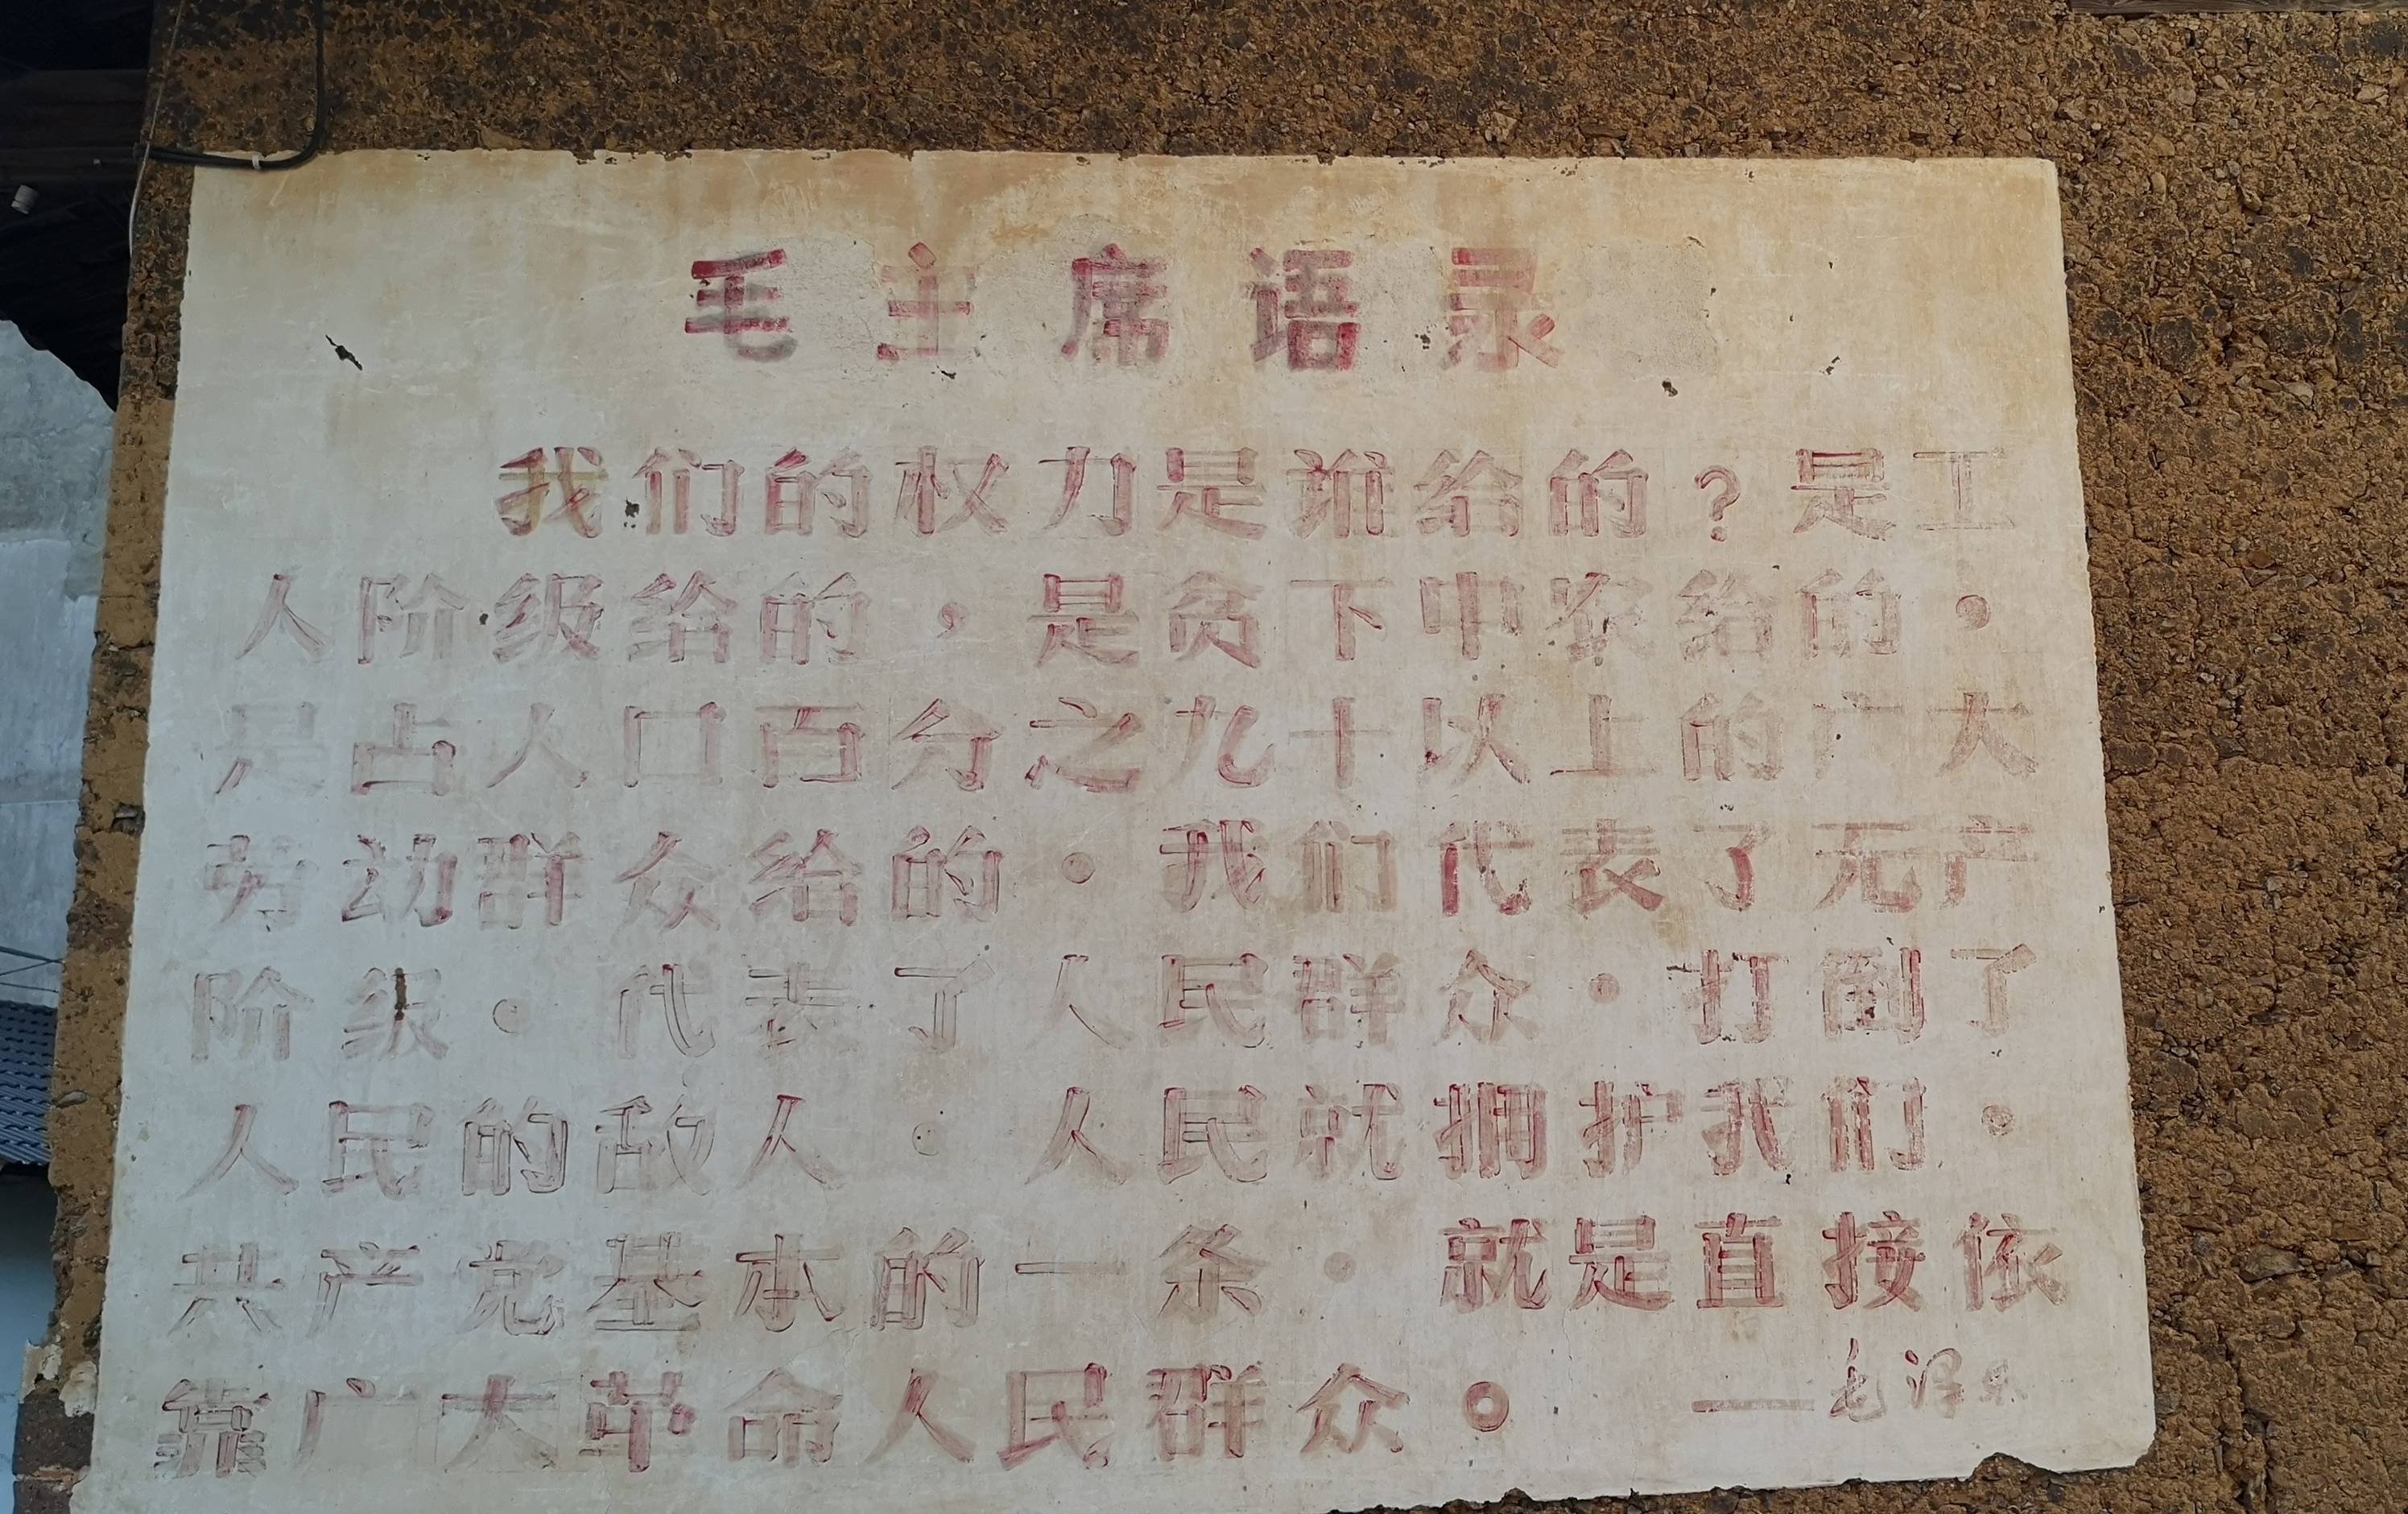 毛主席语录
我们的权力是谁给的？是工
人阶级给的，是贫下中农给的，
是占人口百分之九十以上的广大
劳动群众给的。我们代表了无产
阶级。代表了人民群众。打倒了
人民的敌人。人民就拥护我们。
共产党基本的一条。就是直接依
靠广大革命人民群众。 ——毛泽东